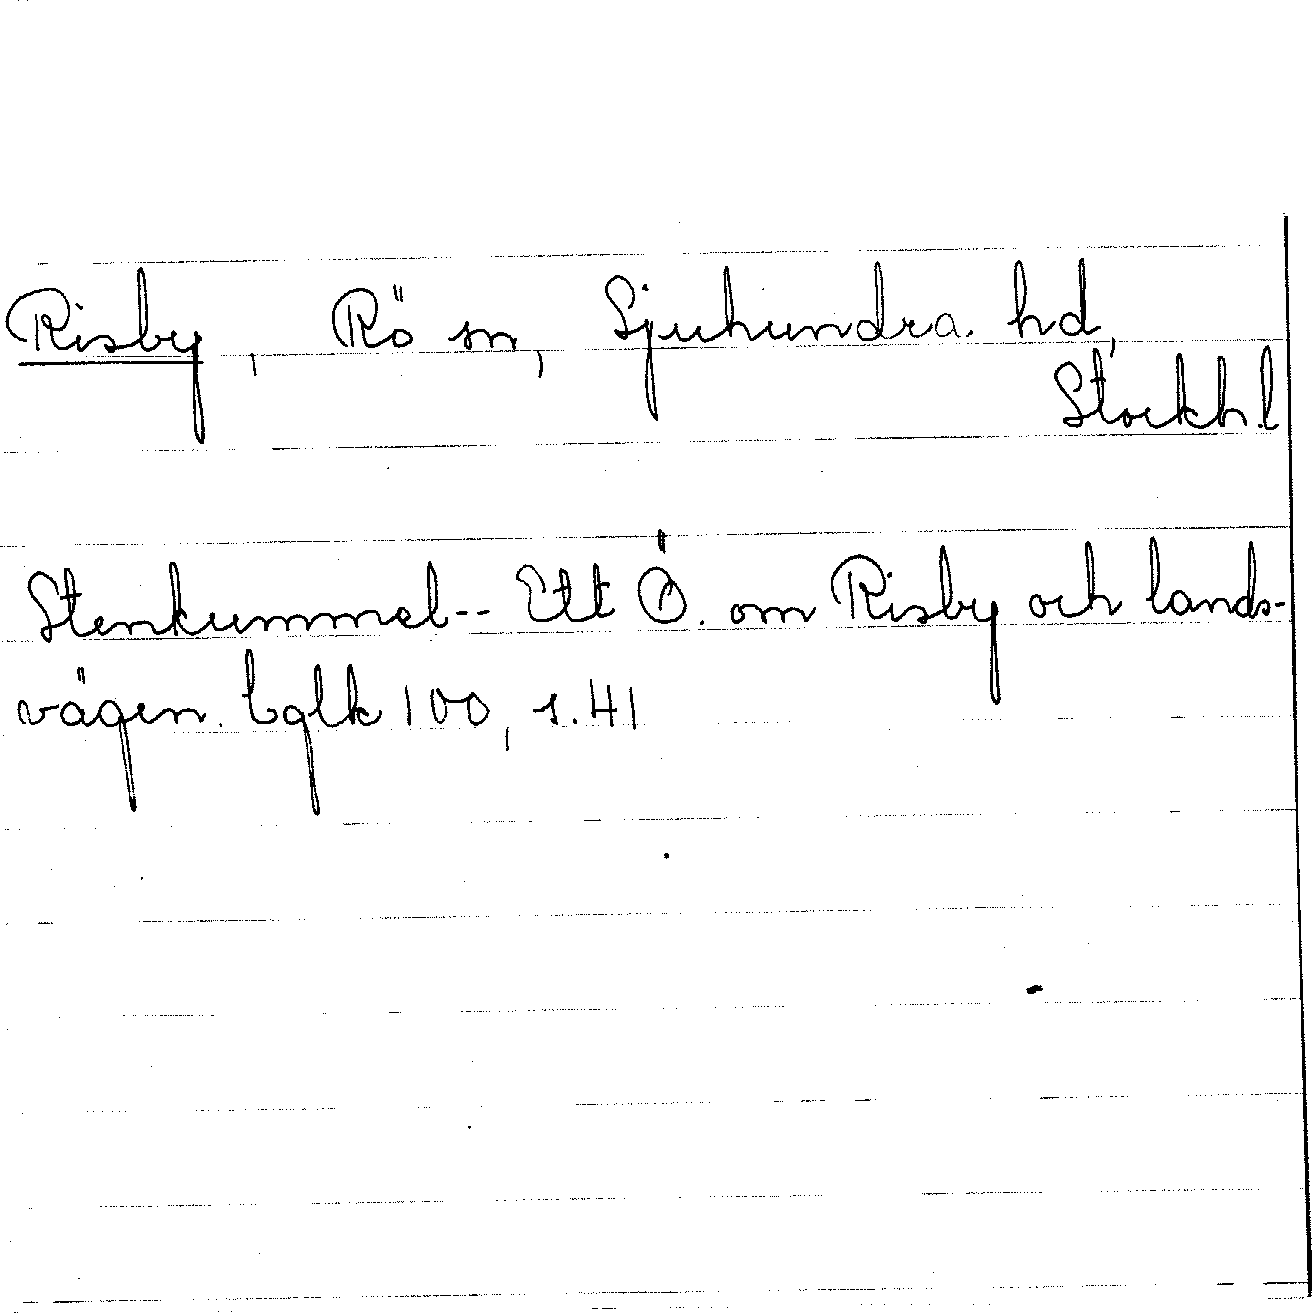 Risby, Rö sn, Sjuhundra hd,
Stockh.l
Stenkummel-- Ett Ö. om Risby och lands-
vägen. bglk 100, s.41